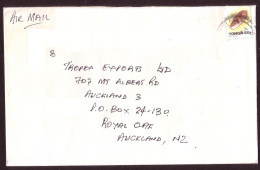 AIR MAIL
8
TROPEX EXPORTS LTD
707 MT ALBERT RD
AUCKLAND 3
P.O. BOX 24-130
ROYAL OAK
AUCKLAND, NZ